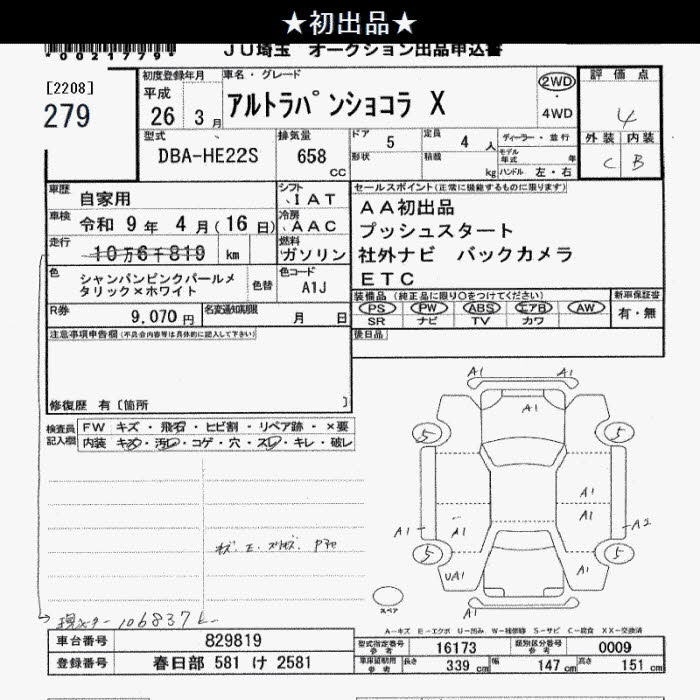 ★初出品★
*0021779*
JU埼玉 オークション出品申込書
[2208]
279
初度登録年月
平成
26 3 月
車名・グレード
アルトラパンショコラ X
2WD
4WD
評価点
4
外装 内装
C B
型式
DBA-HE22S
排気量
658
CC
ドア 5
形状
定員 4 人
積載 kg
ディーラー・並行
モデル年式 年
ハンドル 左・右
車歴 自家用
シフト IAT
車検 令和 9 年 4 月 (16 日)
冷房 AAC
走行 10万6千819 km
燃料 ガソリン
色 シャンパンピンクパールメタリック×ホワイト
色替
色コード A1J
R券 9,070 円
名変通知期限 月 日
セールスポイント(正常に機能するものに限ります)
AA初出品
プッシュスタート
社外ナビ バックカメラ
ETC
装備品 (純正品に限り○をつけてください)
新車保証書
PS PW ABS エアB AW
SR ナビ TV カワ
有・無
後日品
注意事項申告欄(不具合内容等は具体的に記入して下さい)
修復歴 有〔箇所 〕
検査員記入欄
FW キズ・飛石・ヒビ割・リペア跡・×要
内装 キズ・汚レ・コゲ・穴・スレ・キレ・破レ
A1 A1
A1
5 5
A1
A1
A1 A1 A2
5 5
UA1 A1
A1
スペア
106837
A-キズ E-エクボ U-凹み W-補修跡 S-サビ C-腐食 XX-交換済
車台番号 829819
登録番号 春日部 581 け 2581
型式指定番号 参考 16173
類別区分番号 参考 0009
車庫証明用 参考 長さ 339 cm 幅 147 cm 高さ 151 cm